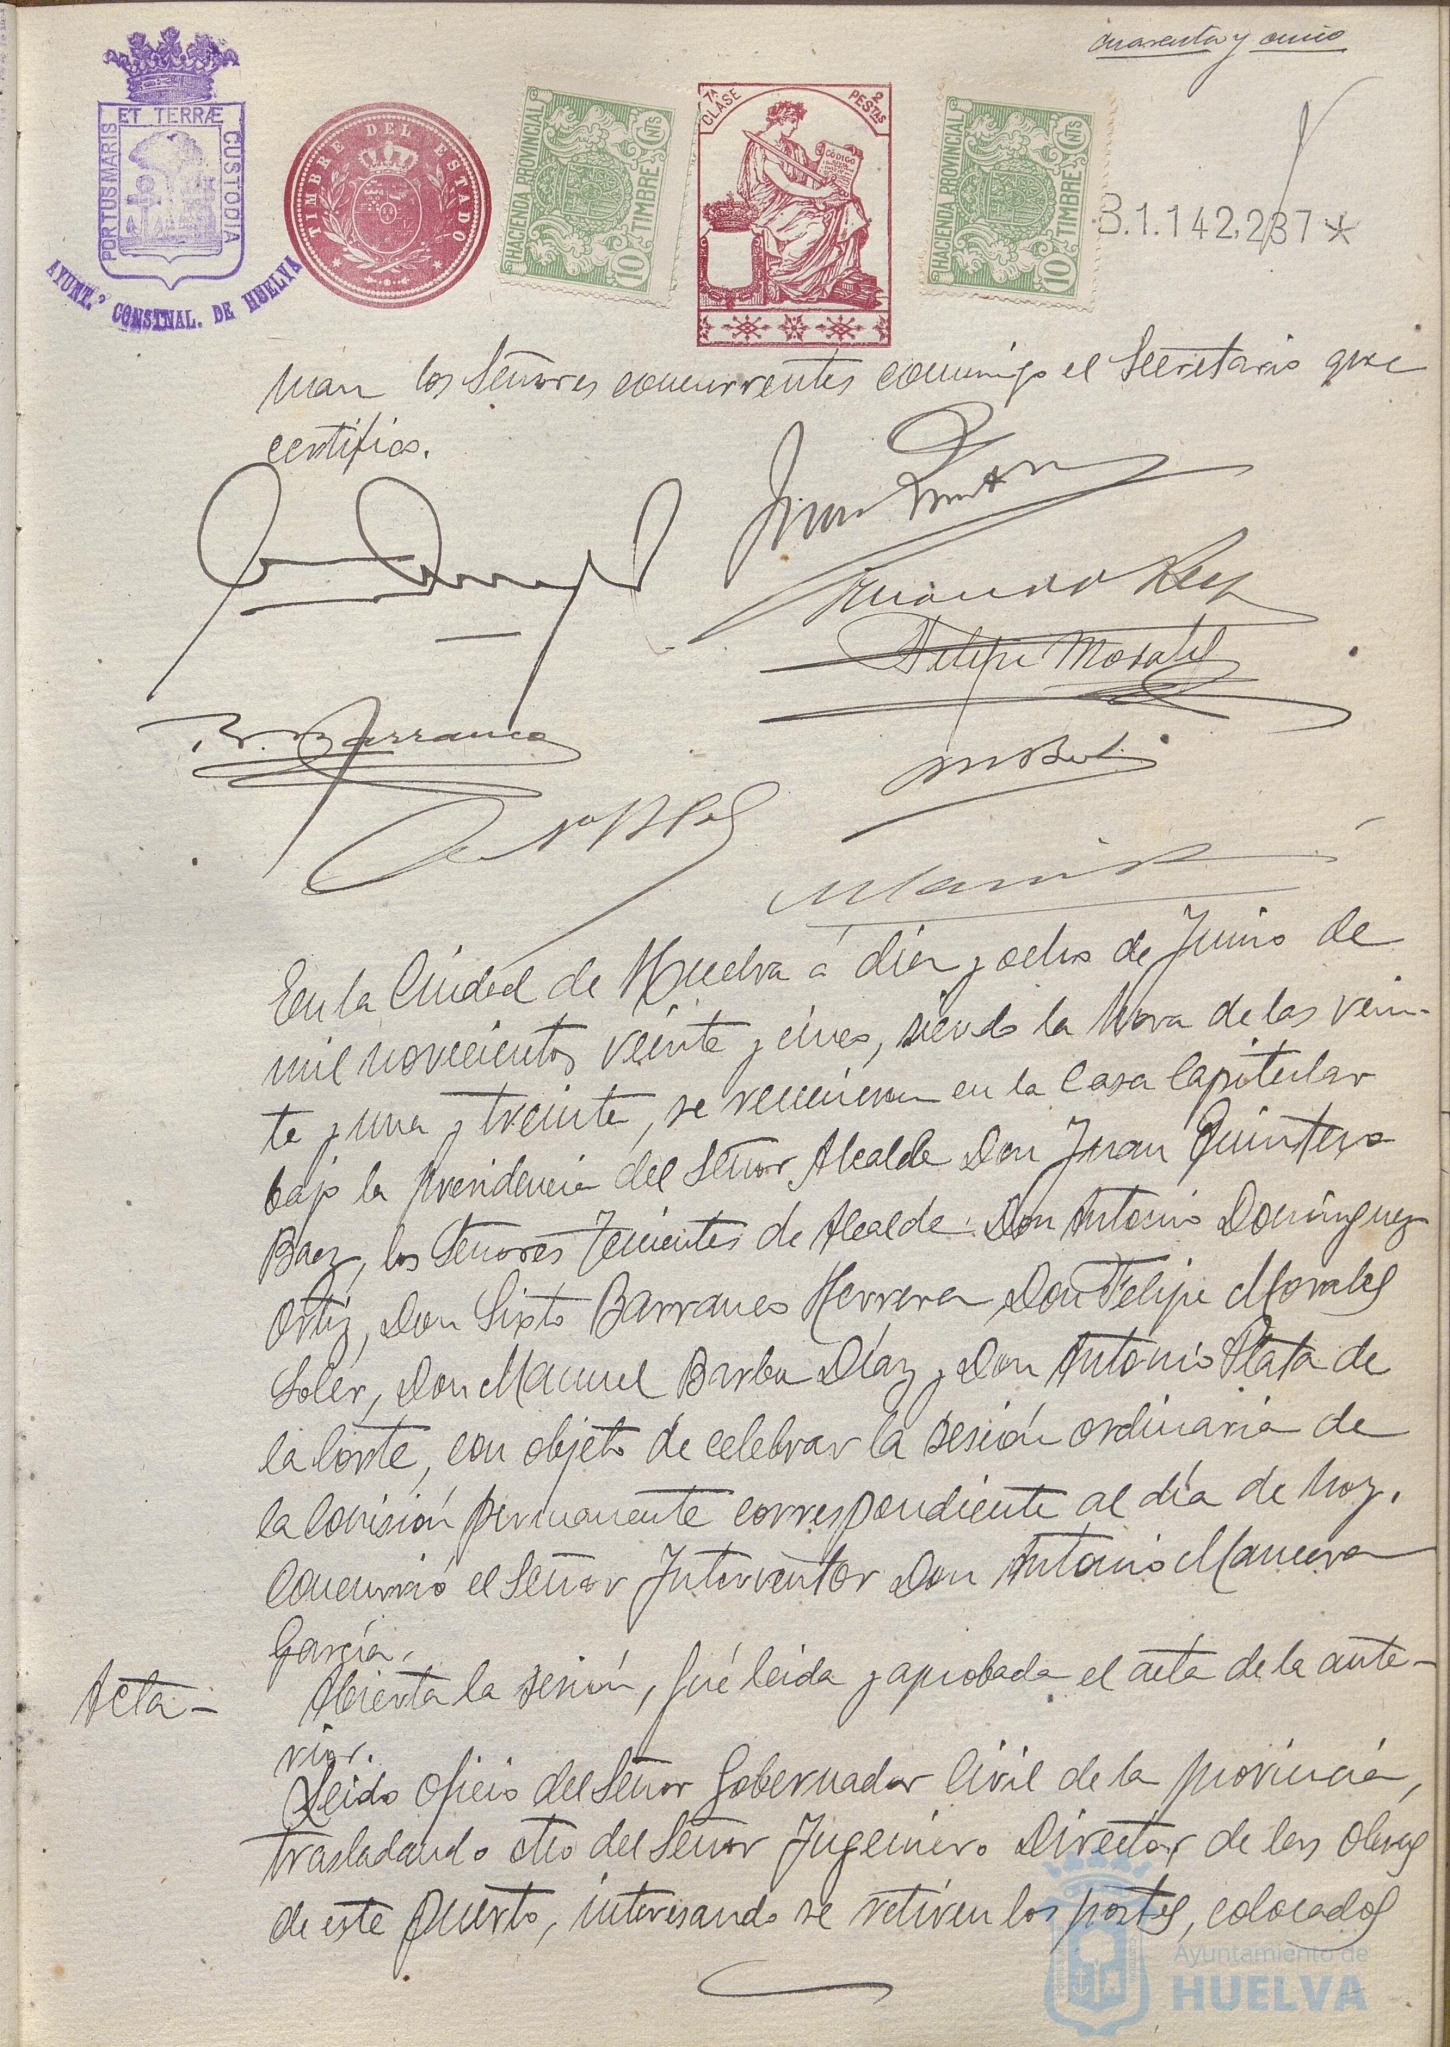 cuarenta y cinco
PORTUS MARIS ET TERRÆ CUSTODIA
AYUNT.º CONSTNAL. DE HUELVA
TIMBRE DEL ESTADO
HACIENDA PROVINCIAL
10 CNTS
TIMBRE
7ª CLASE
2 PESTAS
CÓDIGO
HACIENDA PROVINCIAL
10 CNTS
TIMBRE
B.1.142.237*
man los Señores concurrentes conmigo el Secretario que
certifico.
Felipe Morales
Barranco
En la Ciudad de Huelva á diez y ocho de Junio de
mil novecientos veinte y cinco, siendo la hora de las vein-
te y una y treinta, se reunieron en la Casa Capitular
bajo la presidencia del Señor Alcalde Don Juan Quintero
Baez, los Señores Tenientes de Alcalde: Don Antonio Domínguez
Ortiz, Don Sixto Barranco Herrera, Don Felipe Morales
Soler, Don Manuel Barba Díaz y Don Antonio Plata de
la Corte, con objeto de celebrar la sesión ordinaria de
la Comisión permanente correspondiente al día de hoy.
Concurrió el Señor Interventor Don Antonio Mancera
García.
Acta- Abierta la sesión, fué leida y aprobada el acta de la ante-
rior.
Leido oficio del Señor Gobernador Civil de la provincia,
trasladando otro del Señor Ingeniero Director de las Obras
de este Puerto, interesando se retiren los postes, colocados
Ayuntamiento de
HUELVA